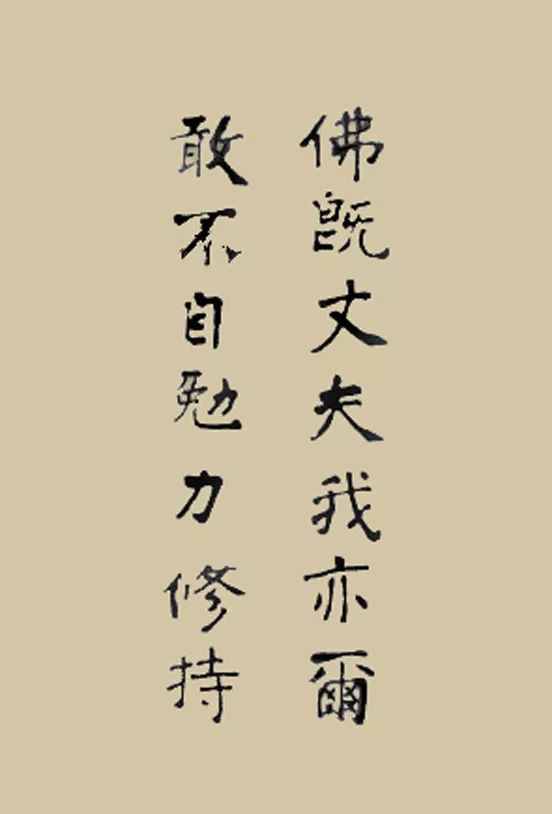 佛既丈夫我亦爾
敢不自勉力修持